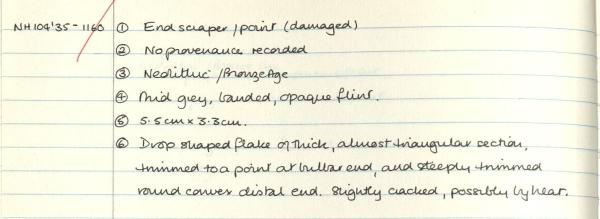 NH104'35-1160 ① End scraper / point (damaged)
② No provenance recorded
③ Neolithic / Bronze Age
④ Mid grey, banded, opaque flint.
⑤ 5.5cm x 3.3cm.
⑥ Drop shaped flake of thick, almost triangular section,
trimmed to a point at bulbar end, and steeply trimmed
round convex distal end. Slightly cracked, possibly by heat.